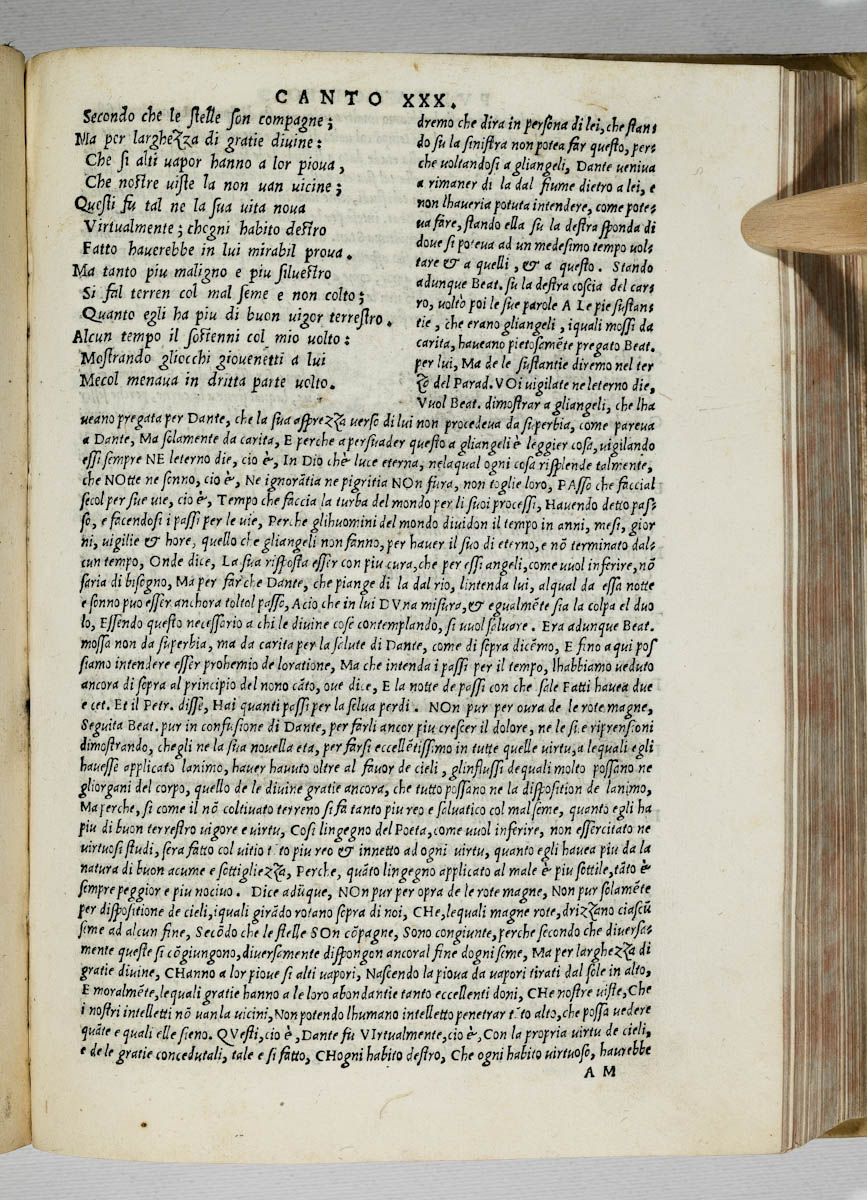 CANTO XXX.
Secondo che le stelle son compagne;
Ma per larghezza di gratie diuine:
Che si alti uapor hanno a lor pioua,
Che nostre uiste la non uan uicine;
Questi fu tal ne la sua uita noua
Virtualmente; chogni habito destro
Fatto hauerebbe in lui mirabil proua.
Ma tanto piu maligno e piu siluestro
Si fal terren col mal seme e non colto;
Quanto egli ha piu di buon uigor terrestro.
Alcun tempo il sostenni col mio uolto:
Mostrando gliocchi giouenetti a lui
Mecol menaua in dritta parte uolto.
dremo che dira in persona di lei, che stan-
do su la sinistra non potea far questo, per-
che uoltandosi a gliangeli, Dante ueniua
a rimaner di la dal fiume dietro a lei, e
non lhaueria potuta intendere, come pote-
ua fare, stando ella su la destra sponda di
doue si poteua ad un medesimo tempo uol-
tare & a quelli, & a questo. Stando
adunque Beat. su la destra coscia del car-
ro, uolto poi le sue parole A Le pie sustan-
tie, che erano gliangeli, iquali mossi da
carita, haueano pietosamēte pregato Beat.
per lui, Ma de le sustantie diremo nel ter
zo del Parad. VOi uigilate ne leterno die,
Vuol Beat. dimostrar a gliangeli, che lha
ueano pregata per Dante, che la sua asprezza uerso di lui non procedeua da superbia, come pareua
a Dante, Ma solamente da carita, E perche a persuader questo a gliangeli è leggier cosa, uigilando
essi sempre NE leterno die, cio è, In Dio ch'è luce eterna, nelaqual ogni cosa risplende talmente,
che NOtte ne sonno, cio è, Ne ignorātia ne pigritia NOn fura, non toglie loro, PAsso che faccial
secol per sue uie, cio è, Tempo che faccia la turba del mondo per li suoi processi, Hauendo detto pas-
so, e facendosi i passi per le uie, Perche glihuomini del mondo diuidon il tempo in anni, mesi, gior
ni, uigilie & hore, quello che gliangeli non fanno, per hauer il suo di eterno, e nō terminato dal-
cun tempo, Onde dice, La sua risposta esser con piu cura, che per essi angeli, come uuol inferire, nō
saria di bisogno, Ma per far che Dante, che piange di la dal rio, lintenda lui, alqual da essa notte
e sonno puo esser anchora toltol passo, Acio che in lui DVna misura, & egualmēte sia la colpa el duo
lo, Essendo questo necessario a chi le diuine cose contemplando, si uuol saluare. Era adunque Beat.
mossa non da superbia, ma da carita per la salute di Dante, come di sopra dicēmo, E fino a qui pos
siamo intendere esser prohemio de loratione, Ma che intenda i passi per il tempo, lhabbiamo ueduto
ancora di sopra al principio del nono cāto, oue dice, E la notte de passi con che sale Fatti hauea due
e cet. Et il Petr. disse, Hai quanti passi per la selua perdi. NOn pur per oura de le rote magne,
Seguita Beat. pur in confusione di Dante, per farli ancor piu crescer il dolore, ne le sue riprensioni
dimostrando, chegli ne la sua nouella eta, per farsi eccellētissimo in tutte quelle uirtu, a lequali egli
hauesse applicato lanimo, hauer hauuto oltre al fauor de cieli, glinflussi dequali molto possano ne
gliorgani del corpo, quello de le diuine gratie ancora, che tutto possano ne la disposition de lanimo,
Ma perche, si come il nō coltiuato terreno si fa tanto piu reo e saluatico col mal seme, quanto egli ha
piu di buon terrestro uigore e uirtu, Cosi lingegno del Poeta, come uuol inferire, non essercitato ne
uirtuosi studi, sera fatto col uitio tāto piu reo & innetto ad ogni uirtu, quanto egli hauea piu da la
natura di buon acume e sottigliezza, Perche, quāto lingegno applicato al male è piu sottile, tāto è
sempre peggior e piu nociuo. Dice adūque, NOn pur per opra de le rote magne, Non pur solamēte
per dispositione de cieli, iquali girādo rotano sopra di noi, CHe, lequali magne rote, drizzano ciascū
seme ad alcun fine, Secōdo che le stelle SOn cōpagne, Sono congiunte, perche secondo che diuersa-
mente queste si cōgiungono, diuersamente dispongon ancoral fine dogni seme, Ma per larghezza di
gratie diuine, CHanno a lor pioue si alti uapori, Nascendo la pioua da uapori tirati dal sole in alto,
E moralmēte, lequali gratie hanno a le loro abondantie tanto eccellenti doni, CHe nostre uiste, Che
i nostri intelletti nō uan la uicini, Non potendo lhumano intelletto penetrar tāto alto, che possa uedere
quāte e quali elle sieno. QVesti, cio è, Dante fu VIrtualmente, cio è, Con la propria uirtu de cieli,
e de le gratie concedutali, tale e si fatto, CHogni habito destro, Che ogni habito uirtuoso, haurebbe
A M